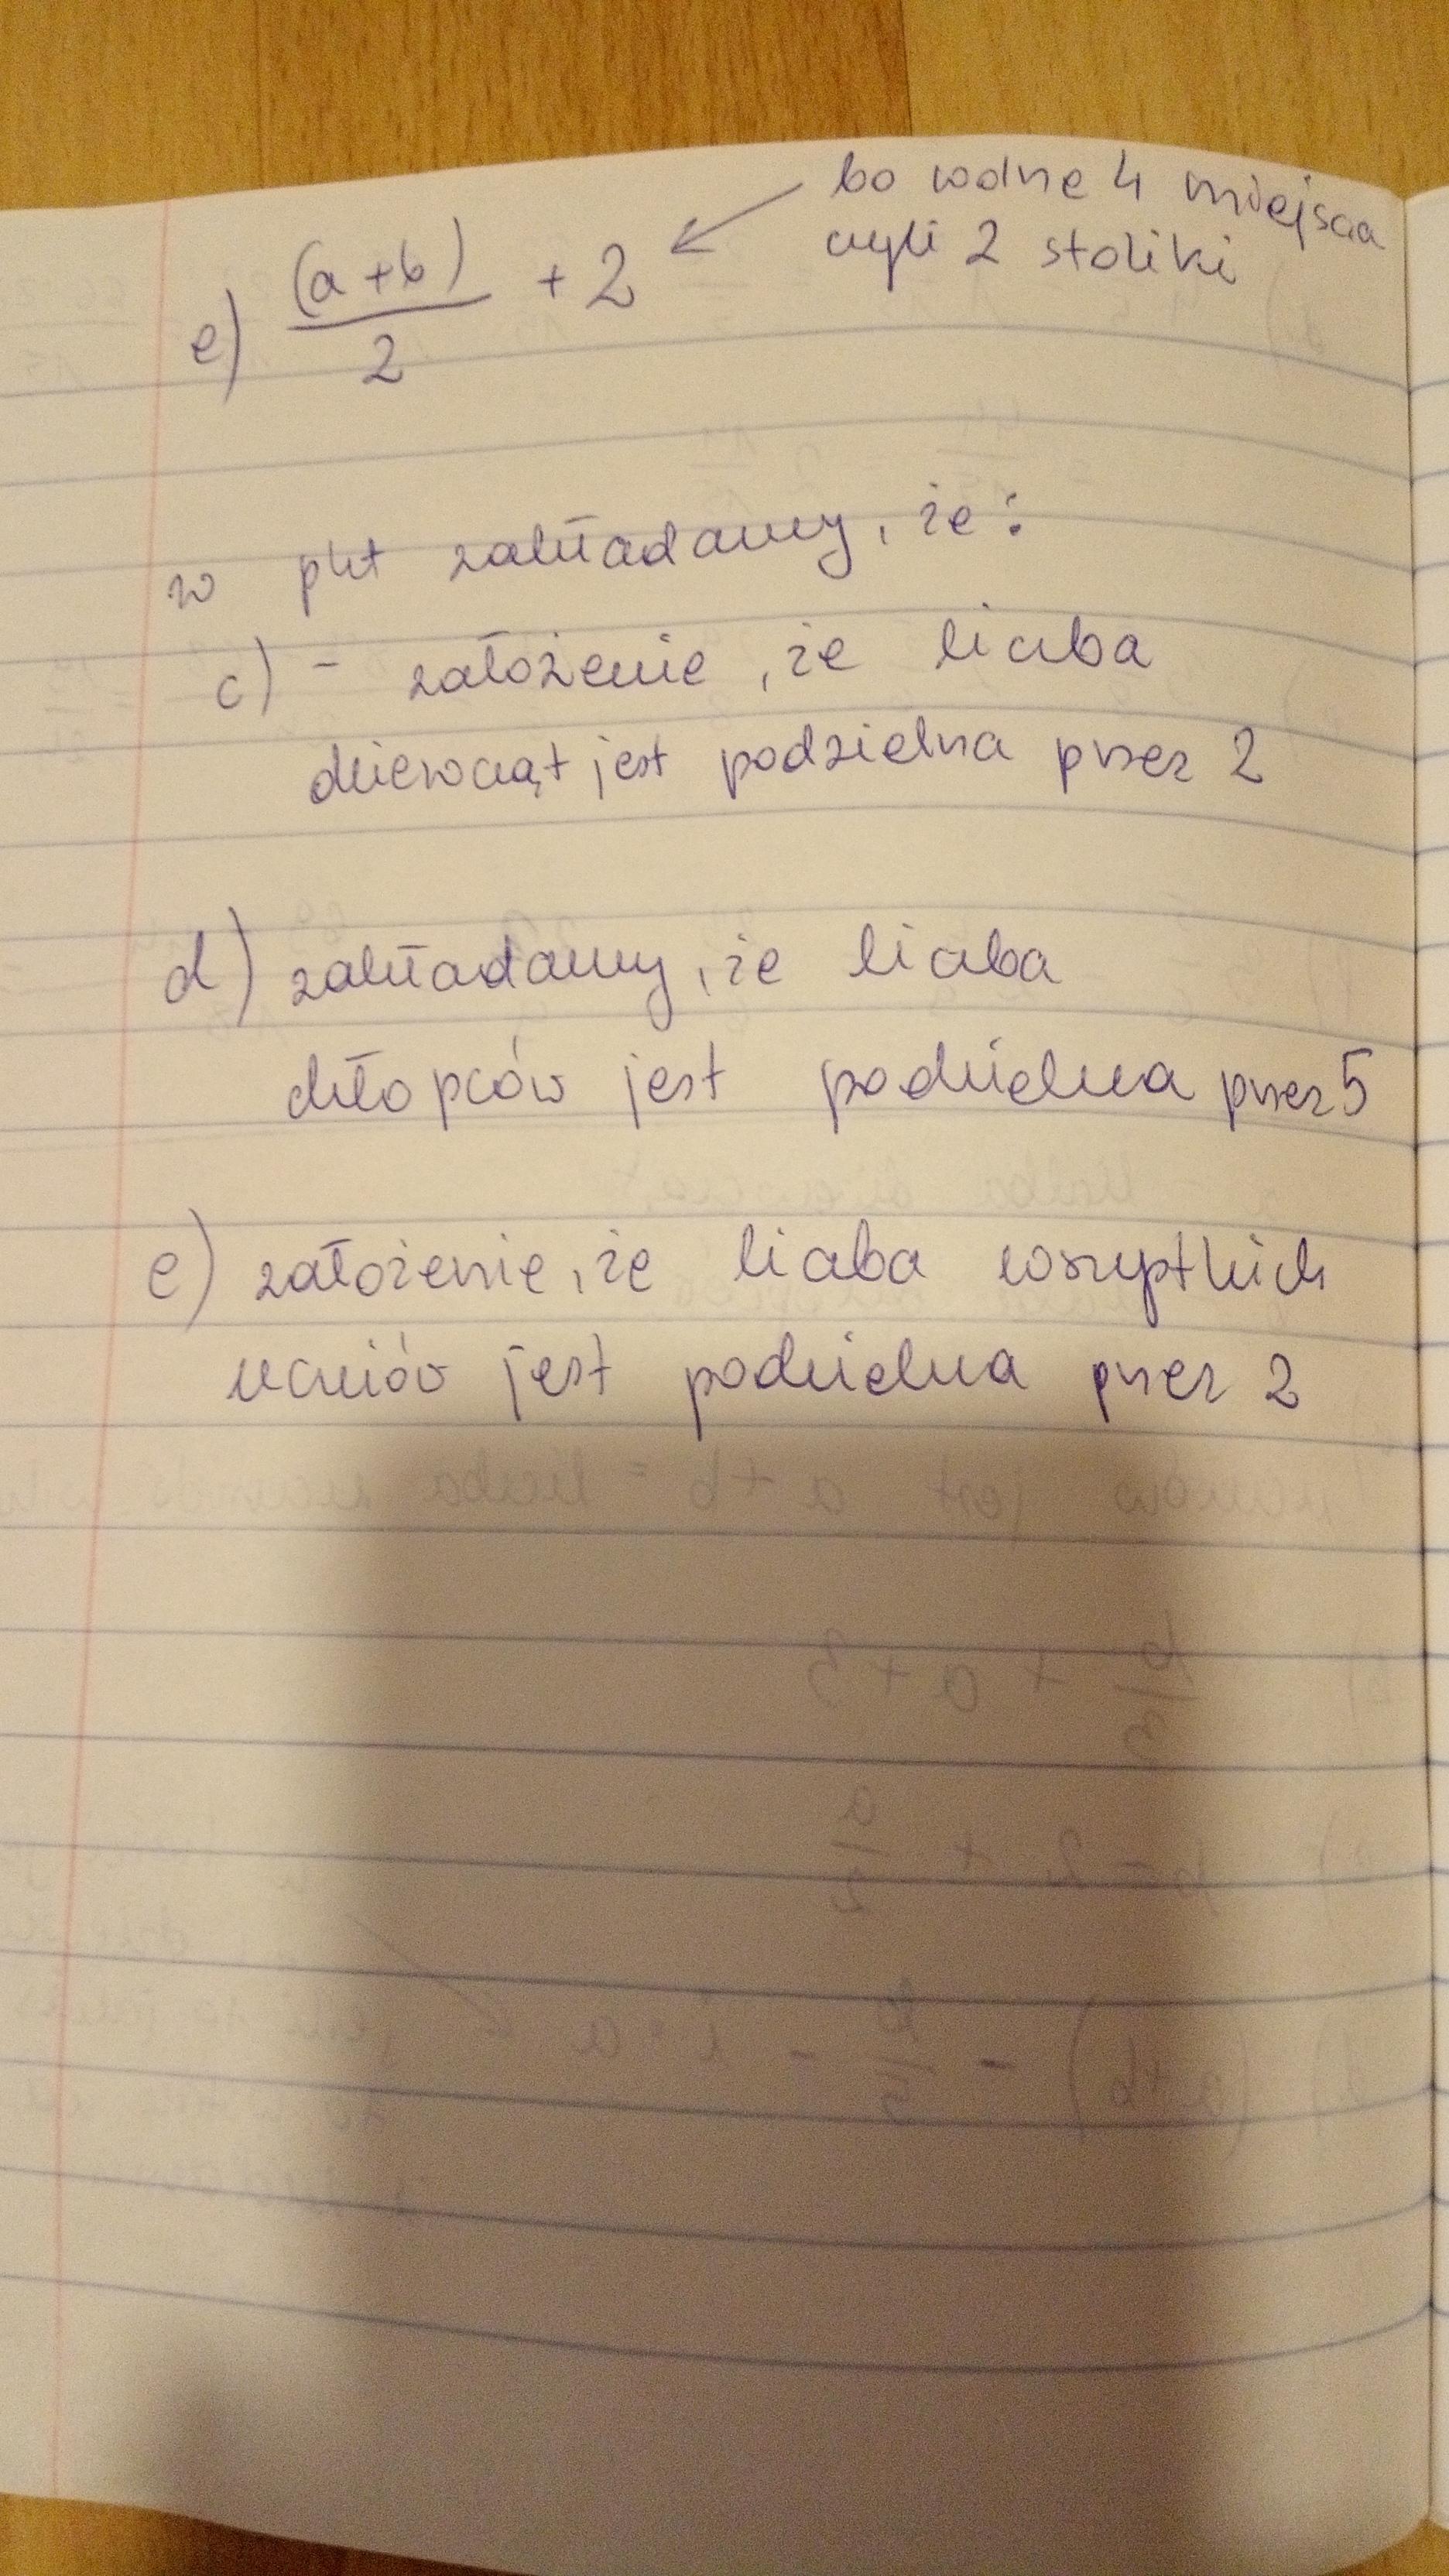 bo wolne 4 miejsca
czyli 2 stoliki
e) (a+b)/2 + 2
w pkt zakładamy, że:
c) - założenie, że liczba
dziewcząt jest podzielna przez 2
d) zakładamy, że liczba
chłopców jest podzielna przez 5
e) założenie, że liczba wszystkich
uczniów jest podzielna przez 2